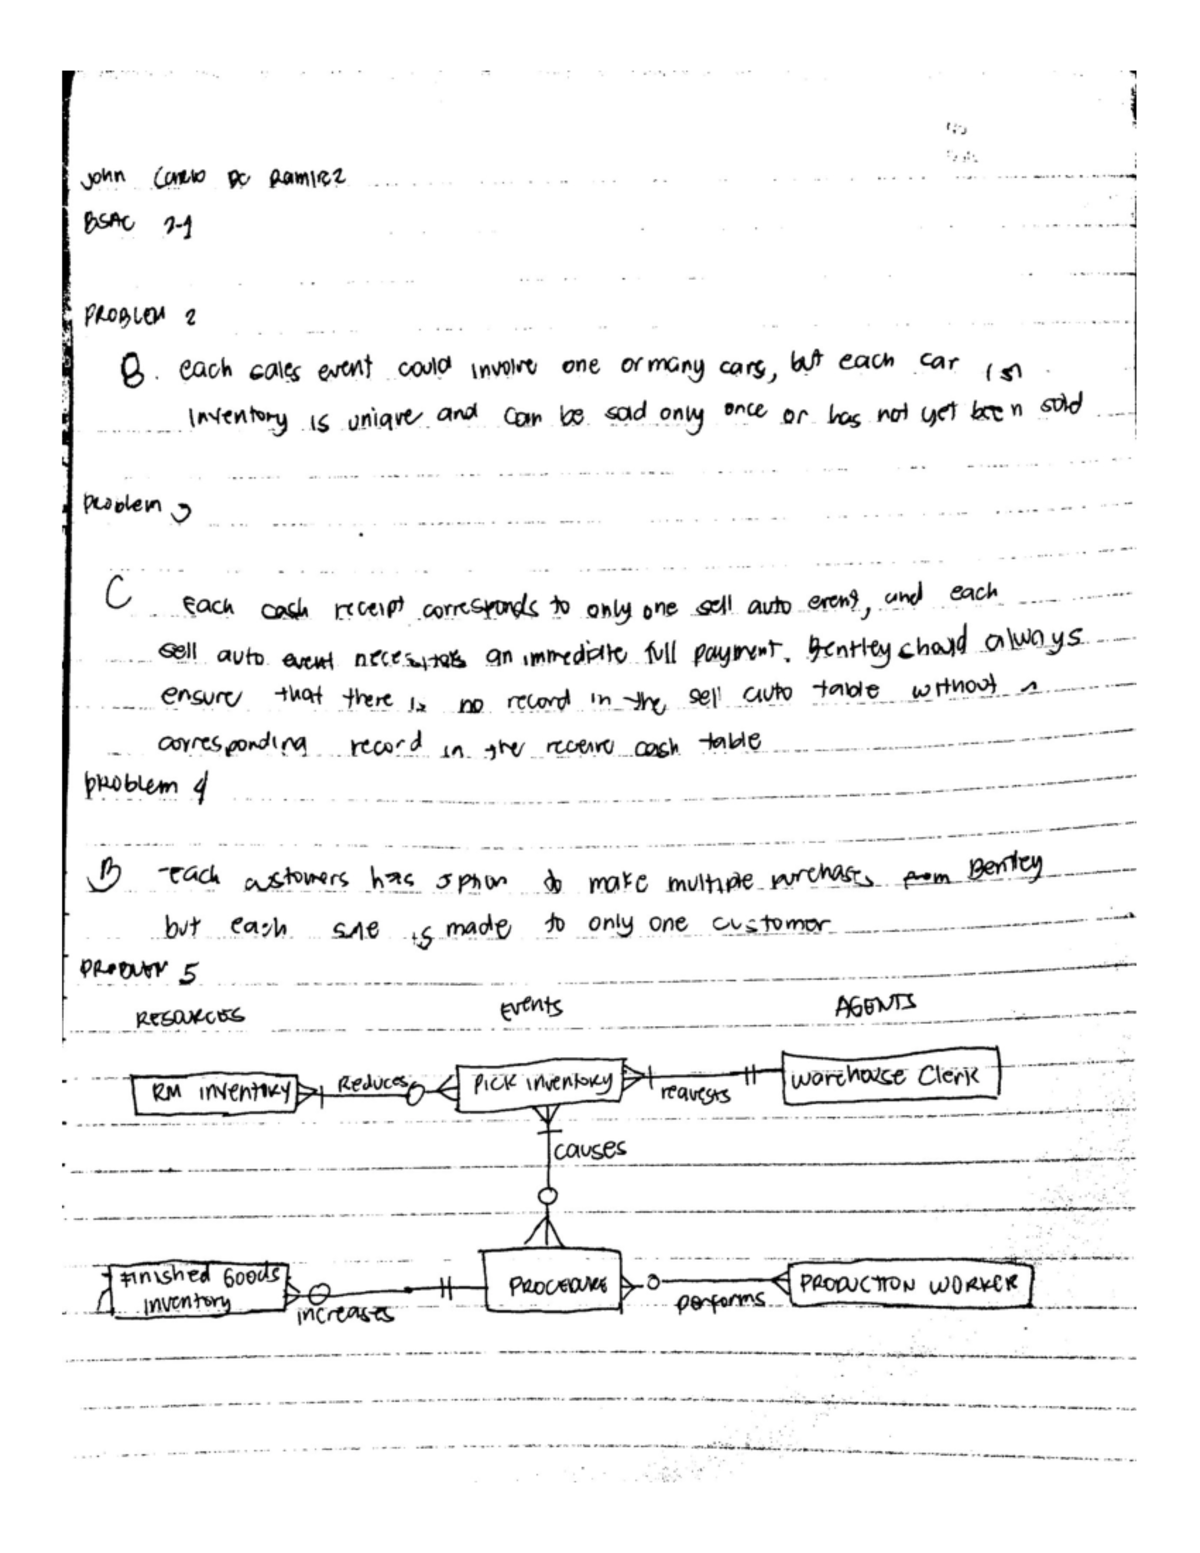 John Carlo DC Ramirez
BSAC 2-1
PROBLEM 2
B. each sales event could involve one or many cars, but each car is in
inventory is unique and can be sold only once or has not yet been sold
problem 3
C Each cash receipt corresponds to only one sell auto event, and each
sell auto event necessitates an immediate full payment. Bentley should always
ensure that there is no record in the sell auto table without a
corresponding record in the receive cash table
problem 4
B Each customers has option to make multiple purchases from Bentley
but each sale is made to only one customer
PROBLEM 5
RESOURCES Events AGENTS
RM inventory Reduces Pick inventory requests Warehouse Clerk
causes
Finished Goods inventory increases PROCEDURE performs PRODUCTION WORKER